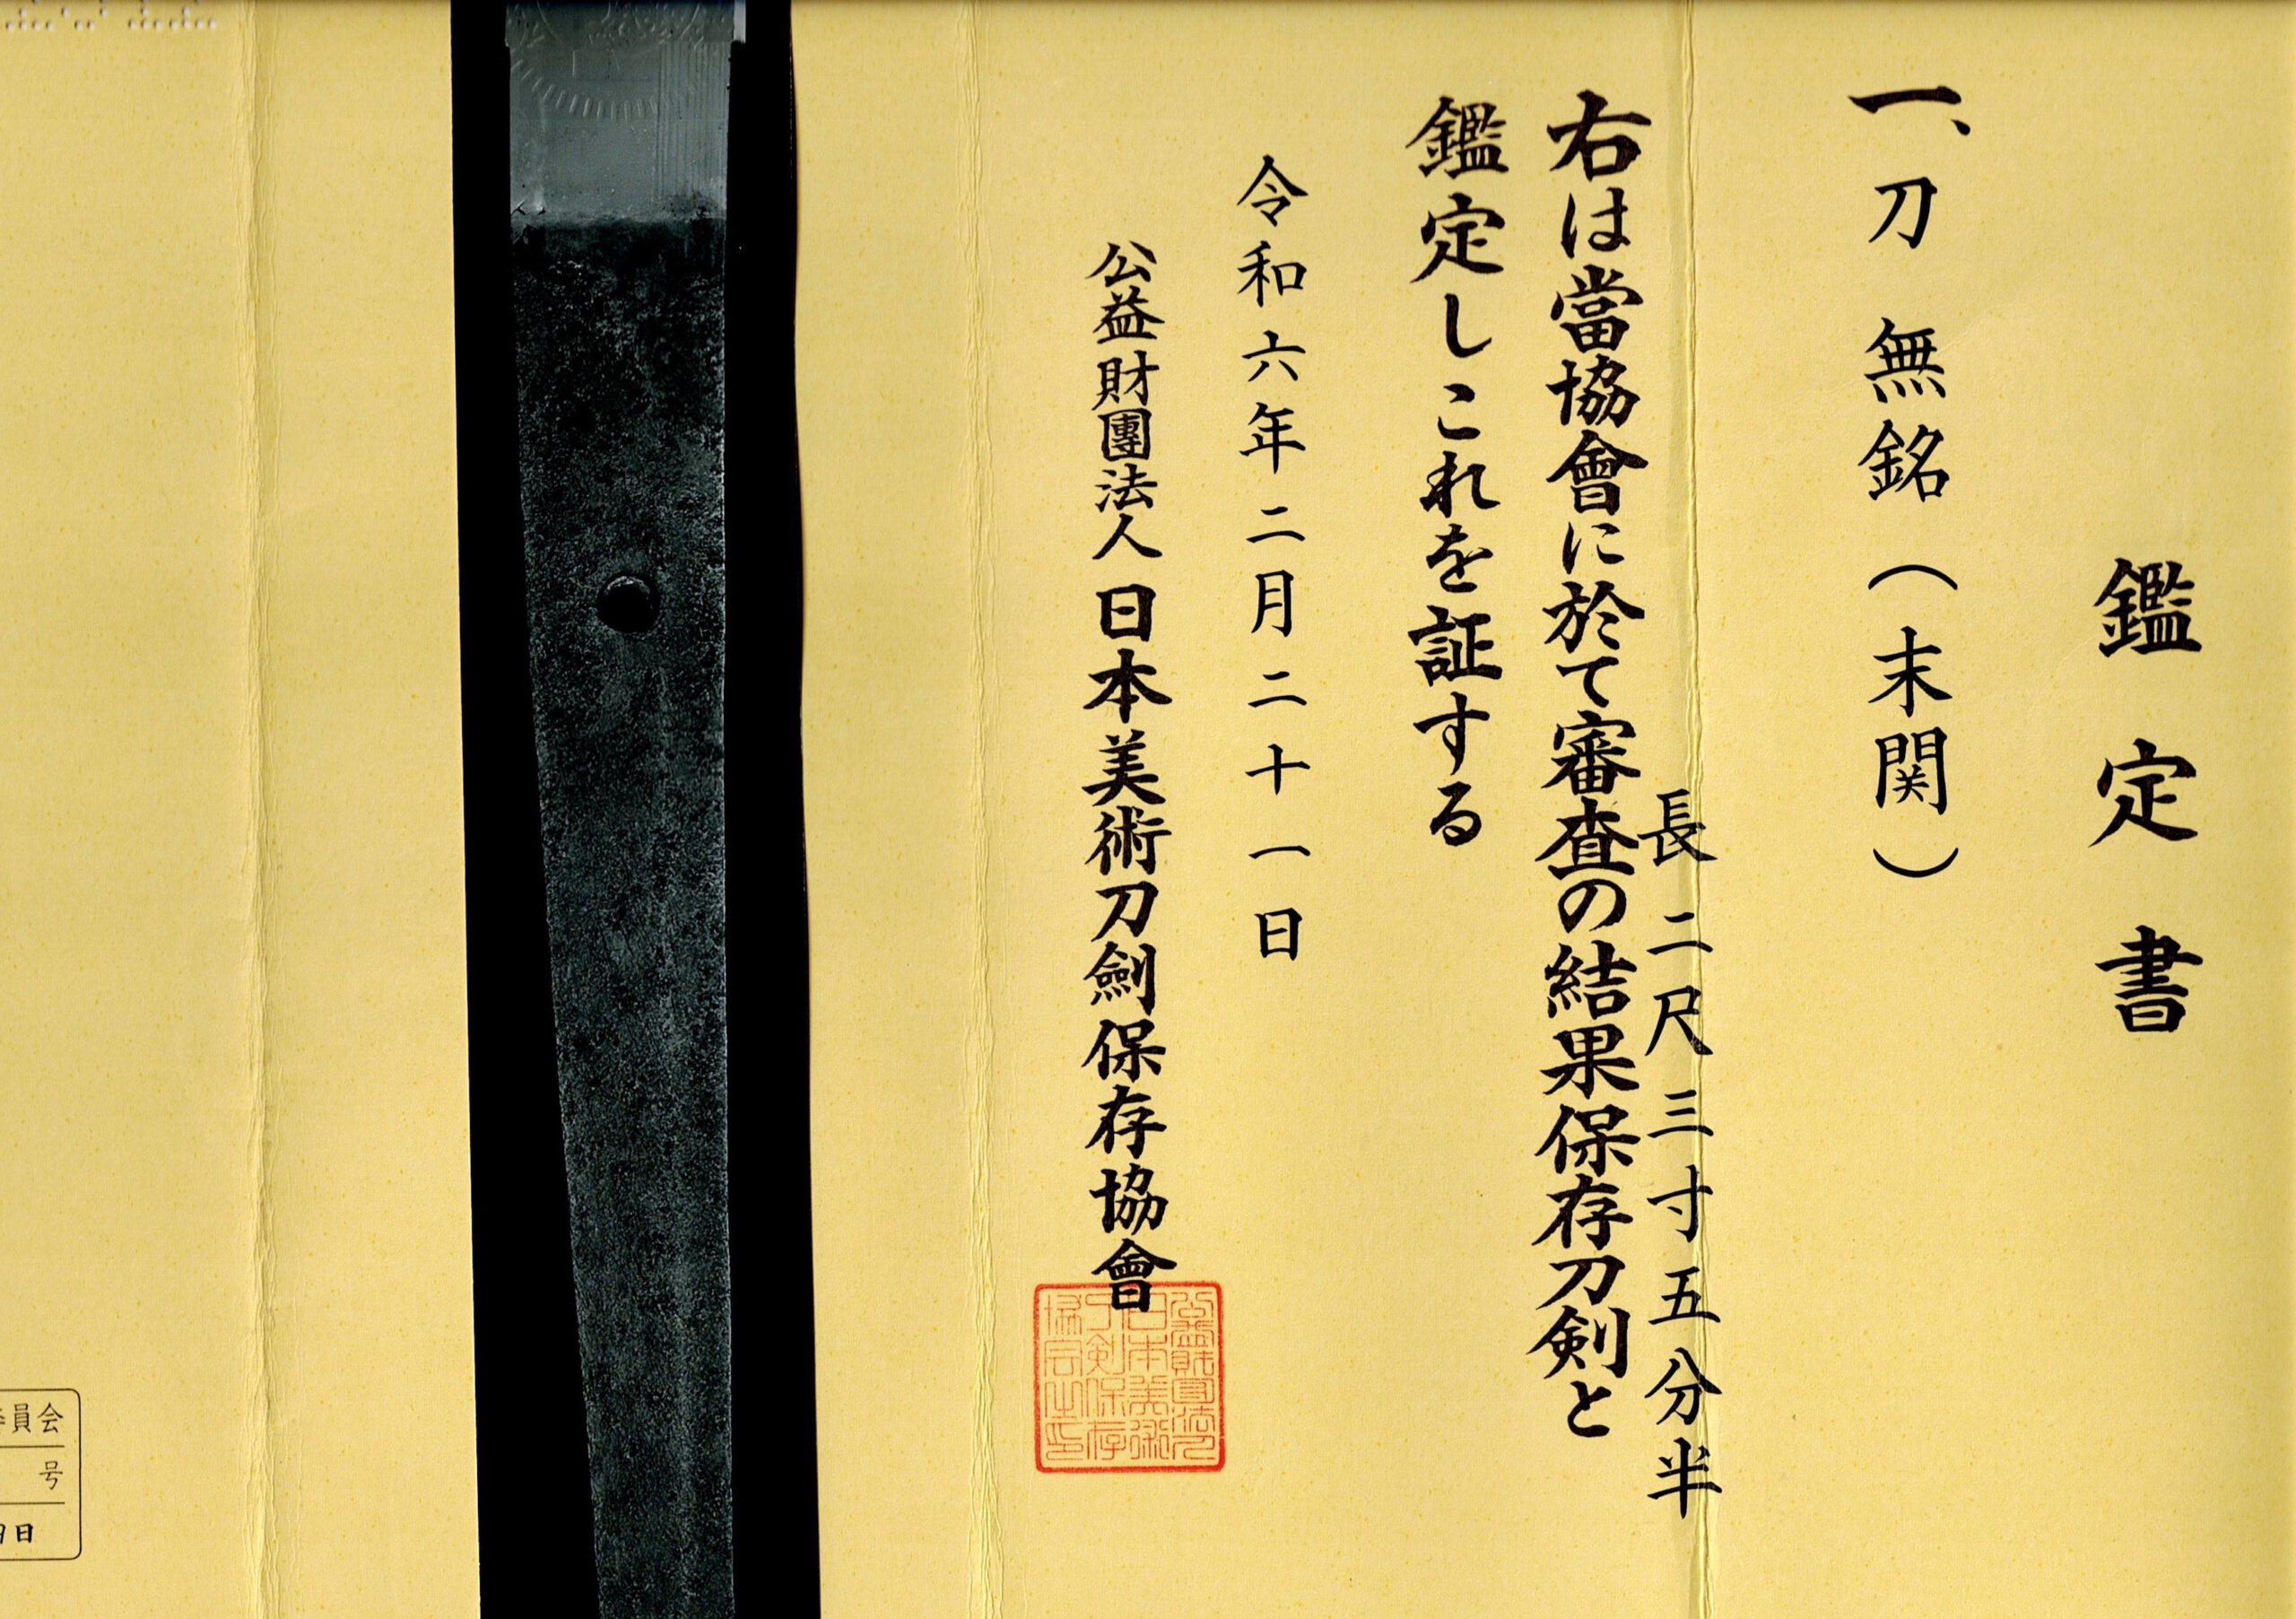 鑑定書
一、刀 無銘（末関）
長 二尺三寸五分半
右は當協會に於て審査の結果保存刀剣と
鑑定しこれを証する
令和六年二月二十一日
公益財團法人日本美術刀劍保存協會
公益財団法人
日本美術
刀剣保存
協会之印
員会
号
日